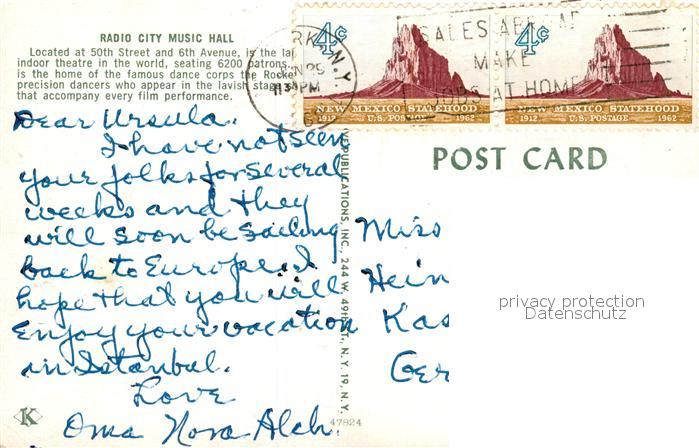 RADIO CITY MUSIC HALL
Located at 50th Street and 6th Avenue, is the
indoor theatre in the world, seating 6200 patrons.
is the home of the famous dance corps the
precision dancers who appear in the lavish stage
that accompany every film performance.
Dear Ursula.
I have not seen
your folks for several
weeks and they
will soon be sailing
back to Europe. I
hope that you will
Enjoy your vacation
in Istanbul.
Love
Oma Nora
K
47824
PUBLICATIONS, INC., 244 W. 49th ST., N.Y. 19, N.Y.
N.Y.
PM
SALES ARE
MAKE
AT HOME
4c
NEW MEXICO STATEHOOD
1912 U.S. POSTAGE 1962
4c
NEW MEXICO STATEHOOD
1912 U.S. POSTAGE 1962
POST CARD
Miss
Hein
Kas
Ger
privacy protection
Datenschutz